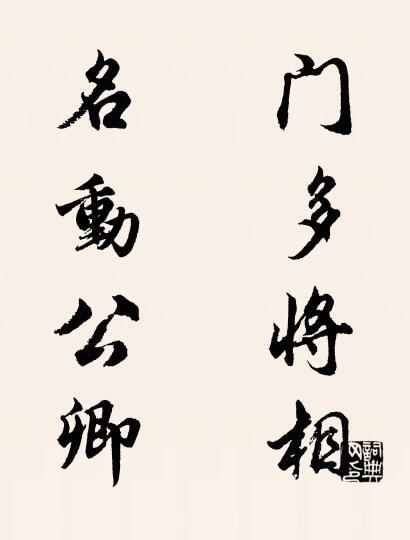 门多将相
名動公卿